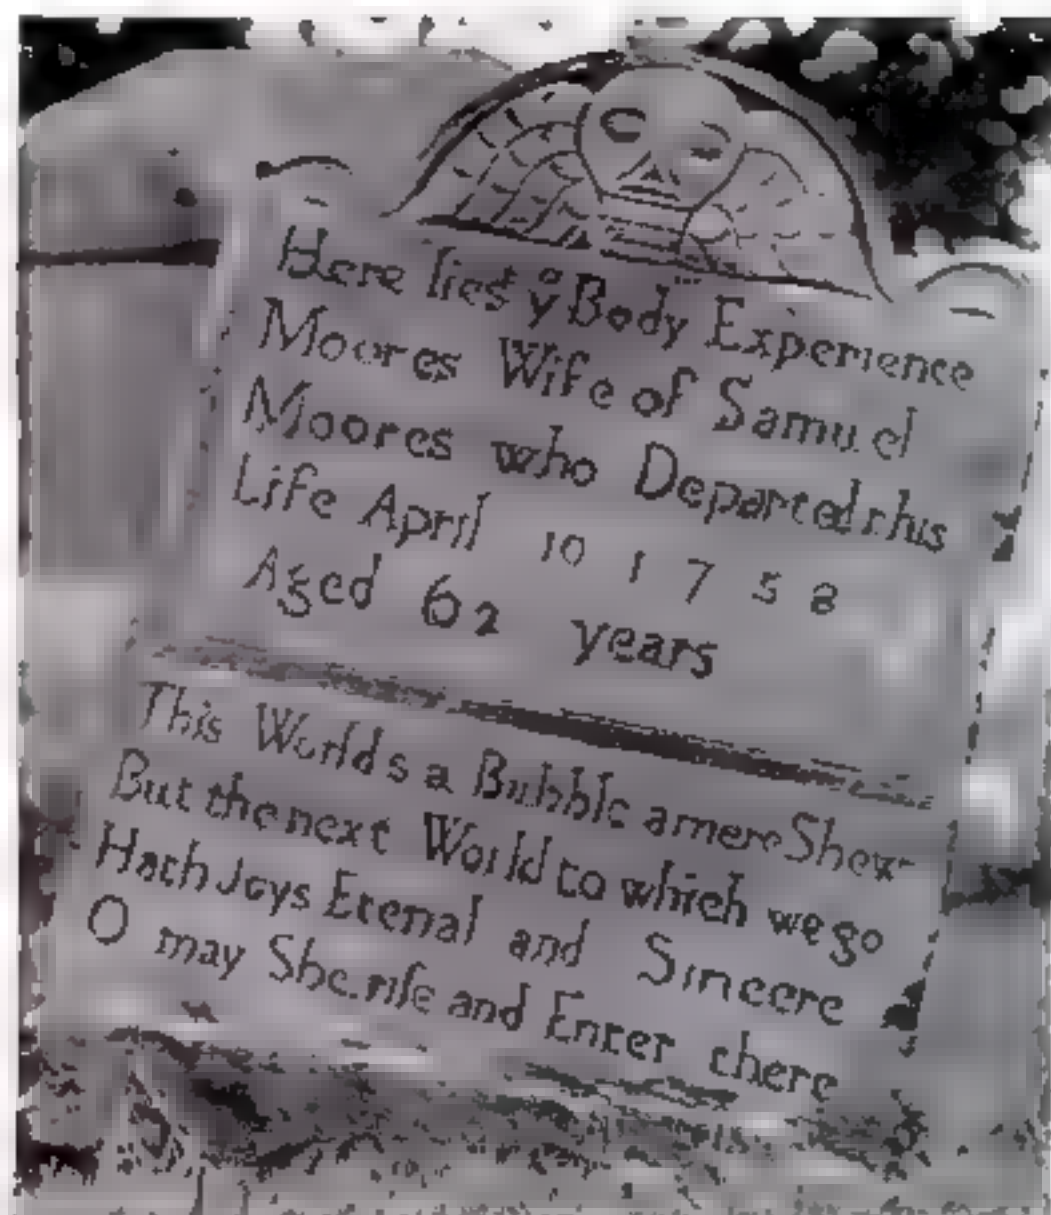 Here lies yᵉ Body Experience
Moores Wife of Samuel
Moores who Departed this
Life April 10 1 7 5 8
Aged 62 years
This Worlds a Bubble a mere Show
But the next World to which we go
Hath Joys Eternal and Sincere
O may She rise and Enter there